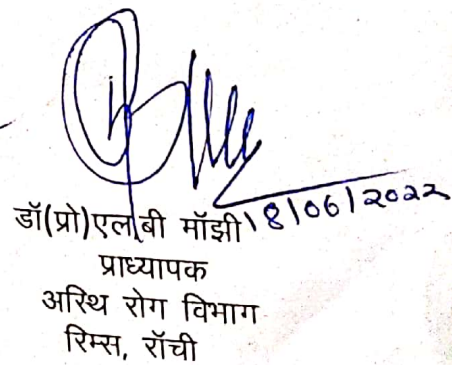 डॉ(प्रो)एल बी मॉझी 18/06/2022
प्राध्यापक
अस्थि रोग विभाग
रिम्स, रॉची